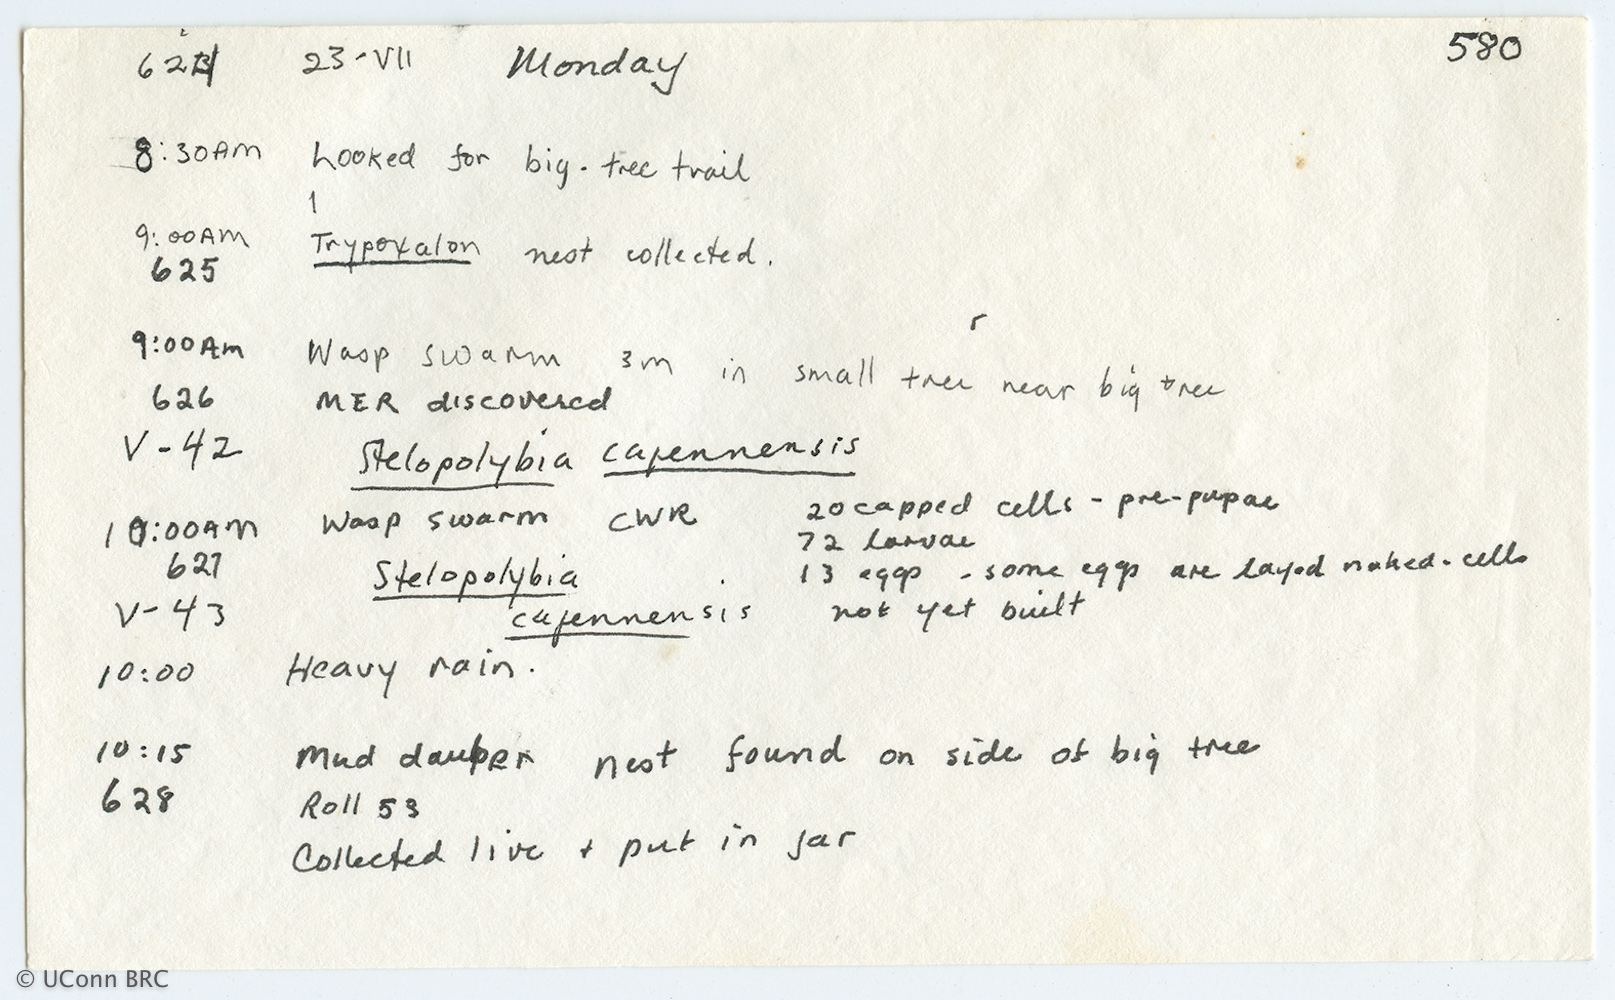 23-VII Monday 580
8:30AM Looked for big-tree trail
9:00AM Trypoxalon nest collected.
625
9:00Am Wasp swarm 3m in small tree near big tree
626 MER discovered
V-42 Stelopolybia cajennensis
10:00AM Wasp swarm CWR 20 capped cells - pre-pupae
72 larvae
627 Stelopolybia 13 eggs - some eggs are layed naked-cells
V-43 cajennensis not yet built
10:00 Heavy rain.
10:15 Mud dauber nest found on side of big tree
628 Roll 53
Collected live + put in jar
© UConn BRC